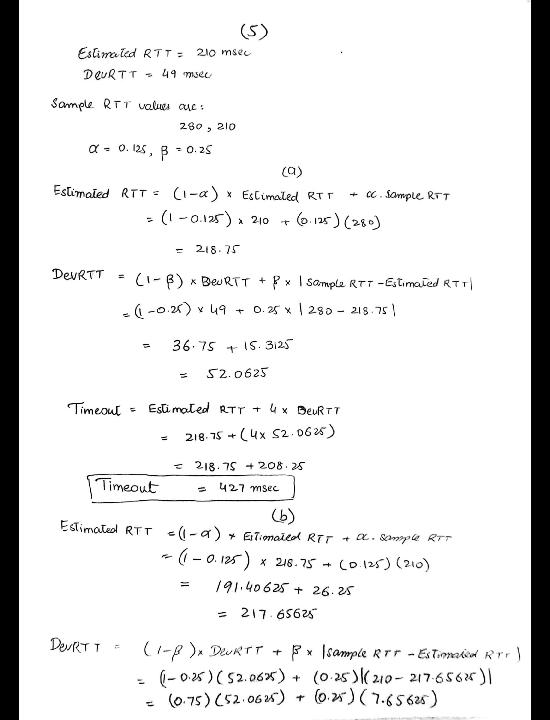 (5)
Estimated RTT = 210 msec
DevRTT = 49 msec
Sample RTT values are:
280, 210
α = 0.125, β = 0.25
(a)
Estimated RTT = (1-α) × Estimated RTT + α. Sample RTT
= (1 - 0.125) × 210 + (0.125) (280)
= 218.75
DevRTT = (1-β) × DevRTT + β × |Sample RTT - Estimated RTT|
= (1-0.25) × 49 + 0.25 × |280 - 218.75|
= 36.75 + 15.3125
= 52.0625
Timeout = Estimated RTT + 4 × DevRTT
= 218.75 + (4× 52.0625)
= 218.75 + 208.25
Timeout = 427 msec
(b)
Estimated RTT = (1-α) × Estimated RTT + α. Sample RTT
= (1 - 0.125) × 218.75 + (0.125) (210)
= 191.40625 + 26.25
= 217.65625
DevRTT = (1-β) × DevRTT + β × |Sample RTT - Estimated RTT|
= (1-0.25) (52.0625) + (0.25)|(210 - 217.65625)|
= (0.75) (52.0625) + (0.25) (7.65625)